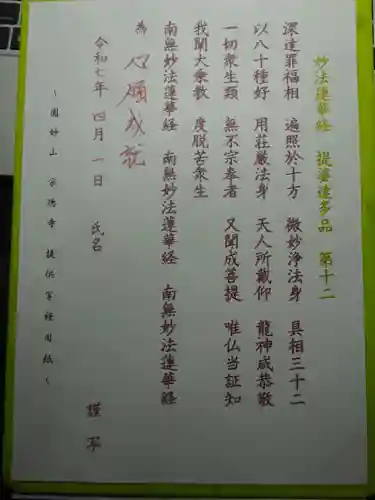 妙法蓮華経　提婆達多品　第十二
深達罪福相　遍照於十方　微妙浄法身　具相三十二
以八十種好　用荘厳法身　天人所戴仰　龍神咸恭敬
一切衆生類　無不宗奉者　又聞成菩提　唯仏当証知
我闡大乗教　度脱苦衆生
南無妙法蓮華経　南無妙法蓮華経　南無妙法蓮華経
為　心願成就
令和七年　四月　一日　氏名　謹写
~圓妙山　宗徳寺　提供写経用紙~